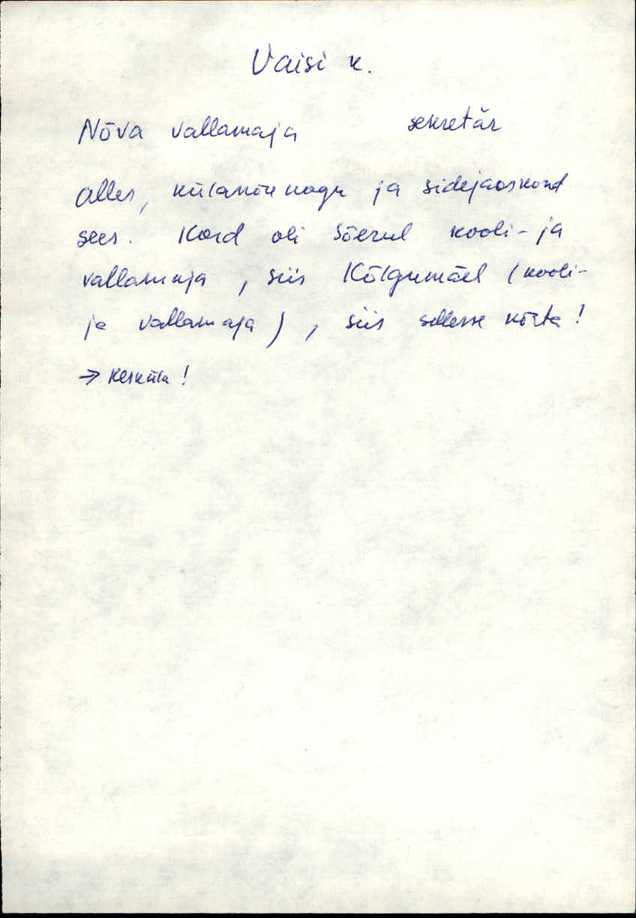 Vaisi k.
Nõva vallamaja sekretär
alles, külanõunogu ja sidejaoskond
sees. Kord oli Sõerul kooli- ja
vallamaja, siis Kõlgumäel (kooli-
ja vallamaja), siis sellesse kõrta!
→ Kesküla!